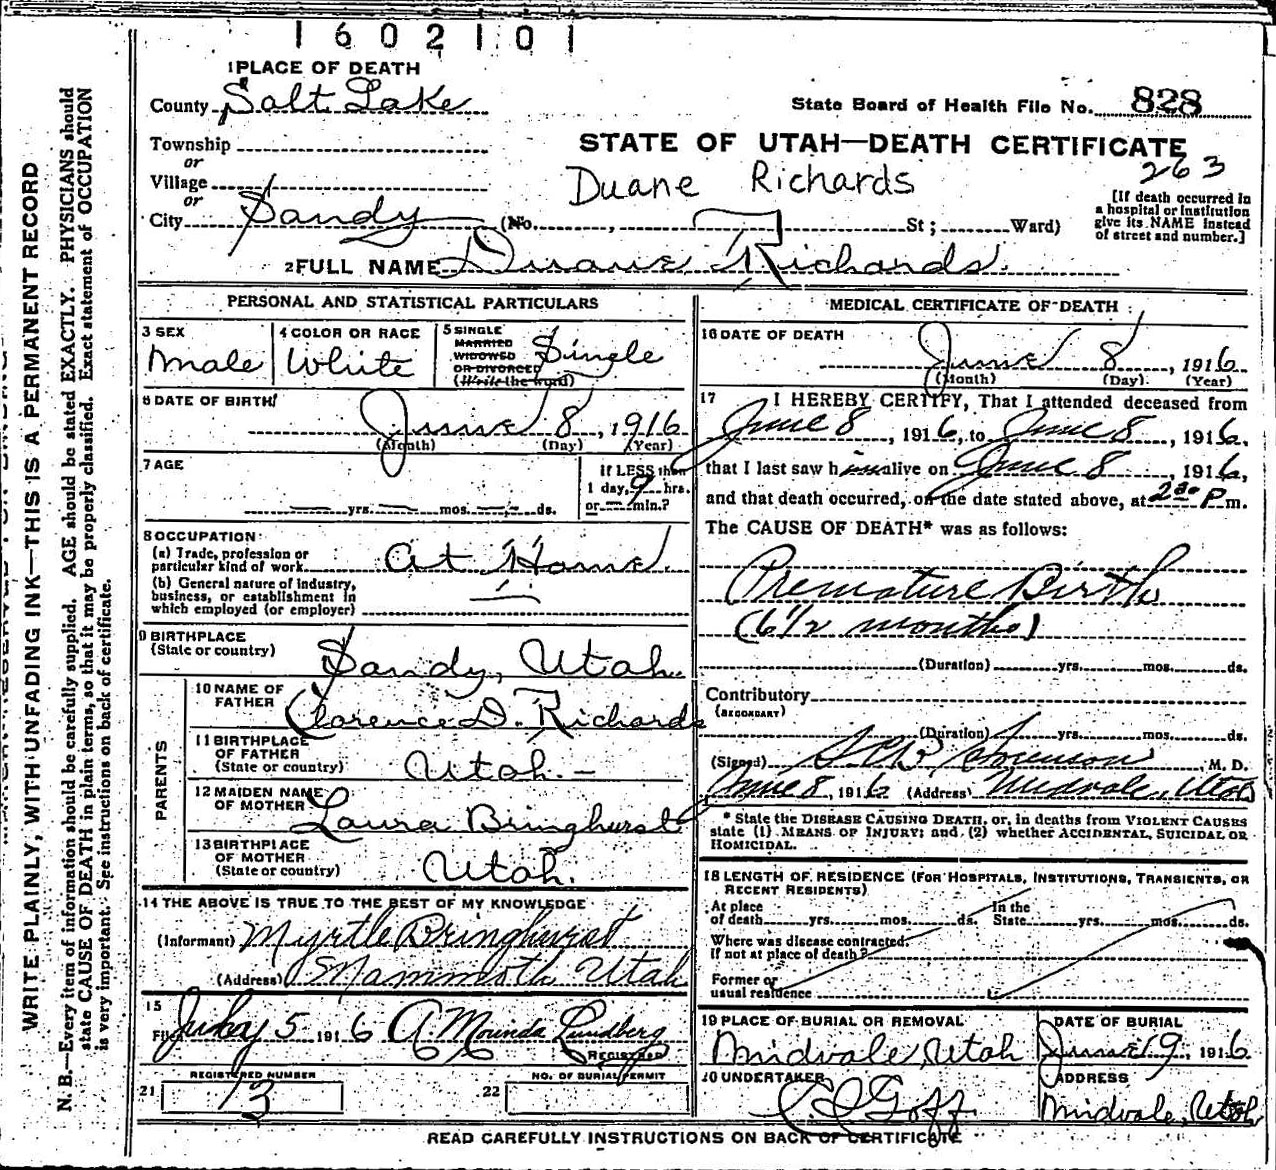 1602101
1 PLACE OF DEATH
County Salt Lake
State Board of Health File No. 828
Township
or
STATE OF UTAH—DEATH CERTIFICATE
263
Village
or
Duane Richards
City Sandy (No. , St ; Ward)
[If death occurred in
a hospital or institution
give its NAME instead
of street and number.]
2 FULL NAME Duane Richards.
PERSONAL AND STATISTICAL PARTICULARS
3 SEX
Male
4 COLOR OR RACE
White
5 SINGLE
MARRIED
WIDOWED
OR DIVORCED
(Write the word)
Single
6 DATE OF BIRTH
June 8, 1916
(Month) (Day) (Year)
7 AGE
yrs. mos. ds.
If LESS than
1 day, 9 hrs.
or min.?
8 OCCUPATION
(a) Trade, profession or
particular kind of work At Home
(b) General nature of industry,
business, or establishment in
which employed (or employer)
9 BIRTHPLACE
(State or country)
Sandy, Utah.
PARENTS
10 NAME OF
FATHER
Clarence D. Richards
11 BIRTHPLACE
OF FATHER
(State or country)
Utah.—
12 MAIDEN NAME
OF MOTHER
Laura Bringhurst
13 BIRTHPLACE
OF MOTHER
(State or country)
Utah.
14 THE ABOVE IS TRUE TO THE BEST OF MY KNOWLEDGE
(Informant) Myrtle Bringhurst
(Address) Mammoth Utah
15
Filed July 5 1916 A. Mourinda Lundberg
REGISTRAR
REGISTERED NUMBER
21 13
NO. OF BURIAL PERMIT
22
MEDICAL CERTIFICATE OF DEATH
16 DATE OF DEATH
June 8, 1916
(Month) (Day) (Year)
17 I HEREBY CERTIFY, That I attended deceased from
June 8, 1916, to June 8, 1916,
that I last saw him alive on June 8, 1916,
and that death occurred, on the date stated above, at 2 30 P m.
The CAUSE OF DEATH* was as follows:
Premature Birth
(6 1/2 months)
(Duration) yrs. mos. ds.
Contributory
(SECONDARY)
(Duration) yrs. mos. ds.
(Signed) Sorenson, M. D.
June 8, 1916 (Address) Midvale, Utah
* State the DISEASE CAUSING DEATH, or, in deaths from VIOLENT CAUSES
state (1) MEANS OF INJURY; and (2) whether ACCIDENTAL, SUICIDAL OR
HOMICIDAL.
18 LENGTH OF RESIDENCE (FOR HOSPITALS, INSTITUTIONS, TRANSIENTS, OR
RECENT RESIDENTS)
At place
of death yrs. mos. ds.
In the
State yrs. mos. ds.
Where was disease contracted,
if not at place of death?
Former or
usual residence
19 PLACE OF BURIAL OR REMOVAL
Midvale, Utah
DATE OF BURIAL
June 9, 1916
20 UNDERTAKER
Goff
ADDRESS
Midvale, Utah
READ CAREFULLY INSTRUCTIONS ON BACK OF CERTIFICATE
WRITE PLAINLY, WITH UNFADING INK—THIS IS A PERMANENT RECORD
N. B.—Every item of information should be carefully supplied. AGE should be stated EXACTLY. PHYSICIANS should
state CAUSE OF DEATH in plain terms, so that it may be properly classified. Exact statement of OCCUPATION
is very important. See instructions on back of certificate.